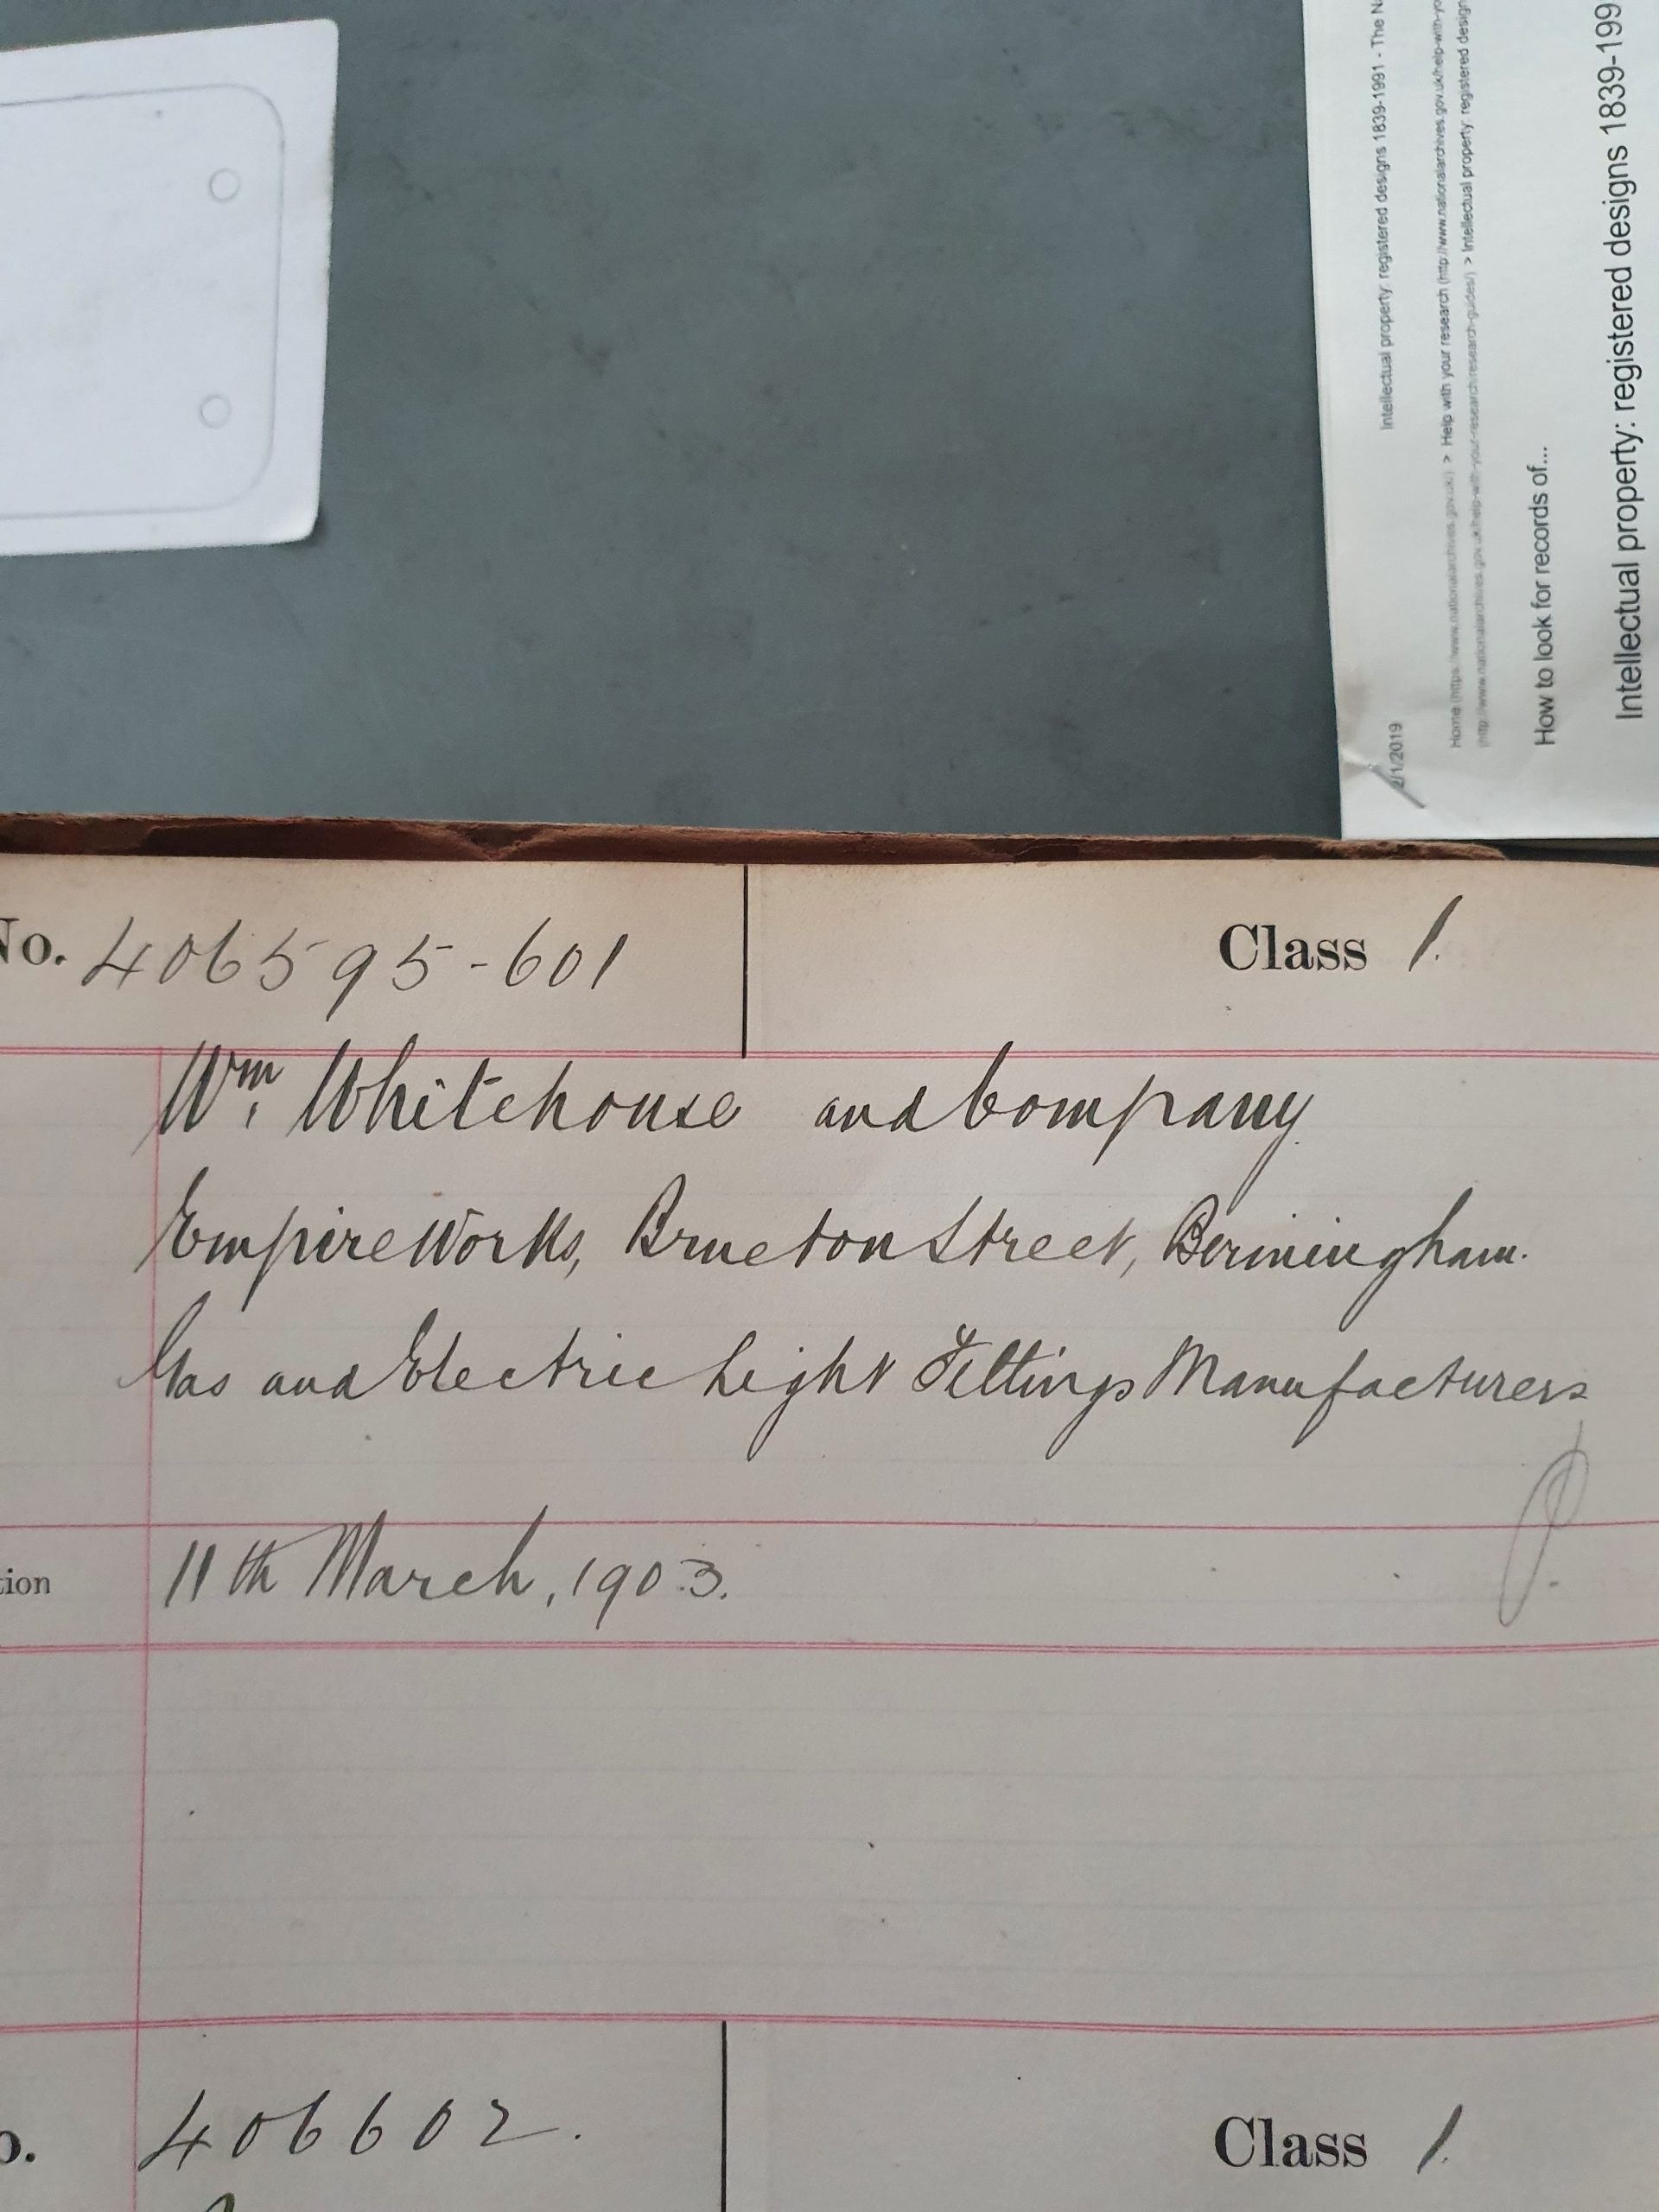 Intellectual property: registered designs 1839-1991 - The
Home (https://www.nationalarchives.gov.uk/) > Help with your research (http://www.nationalarchives.gov.uk/help-with-yo
(http://www.nationalarchives.gov.uk/help-with-your-research/research-guides/) > Intellectual property: registered design
How to look for records of...
Intellectual property: registered designs 1839-199
2/1/2019
No. 406595-601
Class 1.
Wm. Whitehouse and Company
Empire Works, Brueton Street, Birmingham.
Gas and Electric Light Fittings Manufacturers
tion
11th March, 1903.
o. 406602.
Class 1.